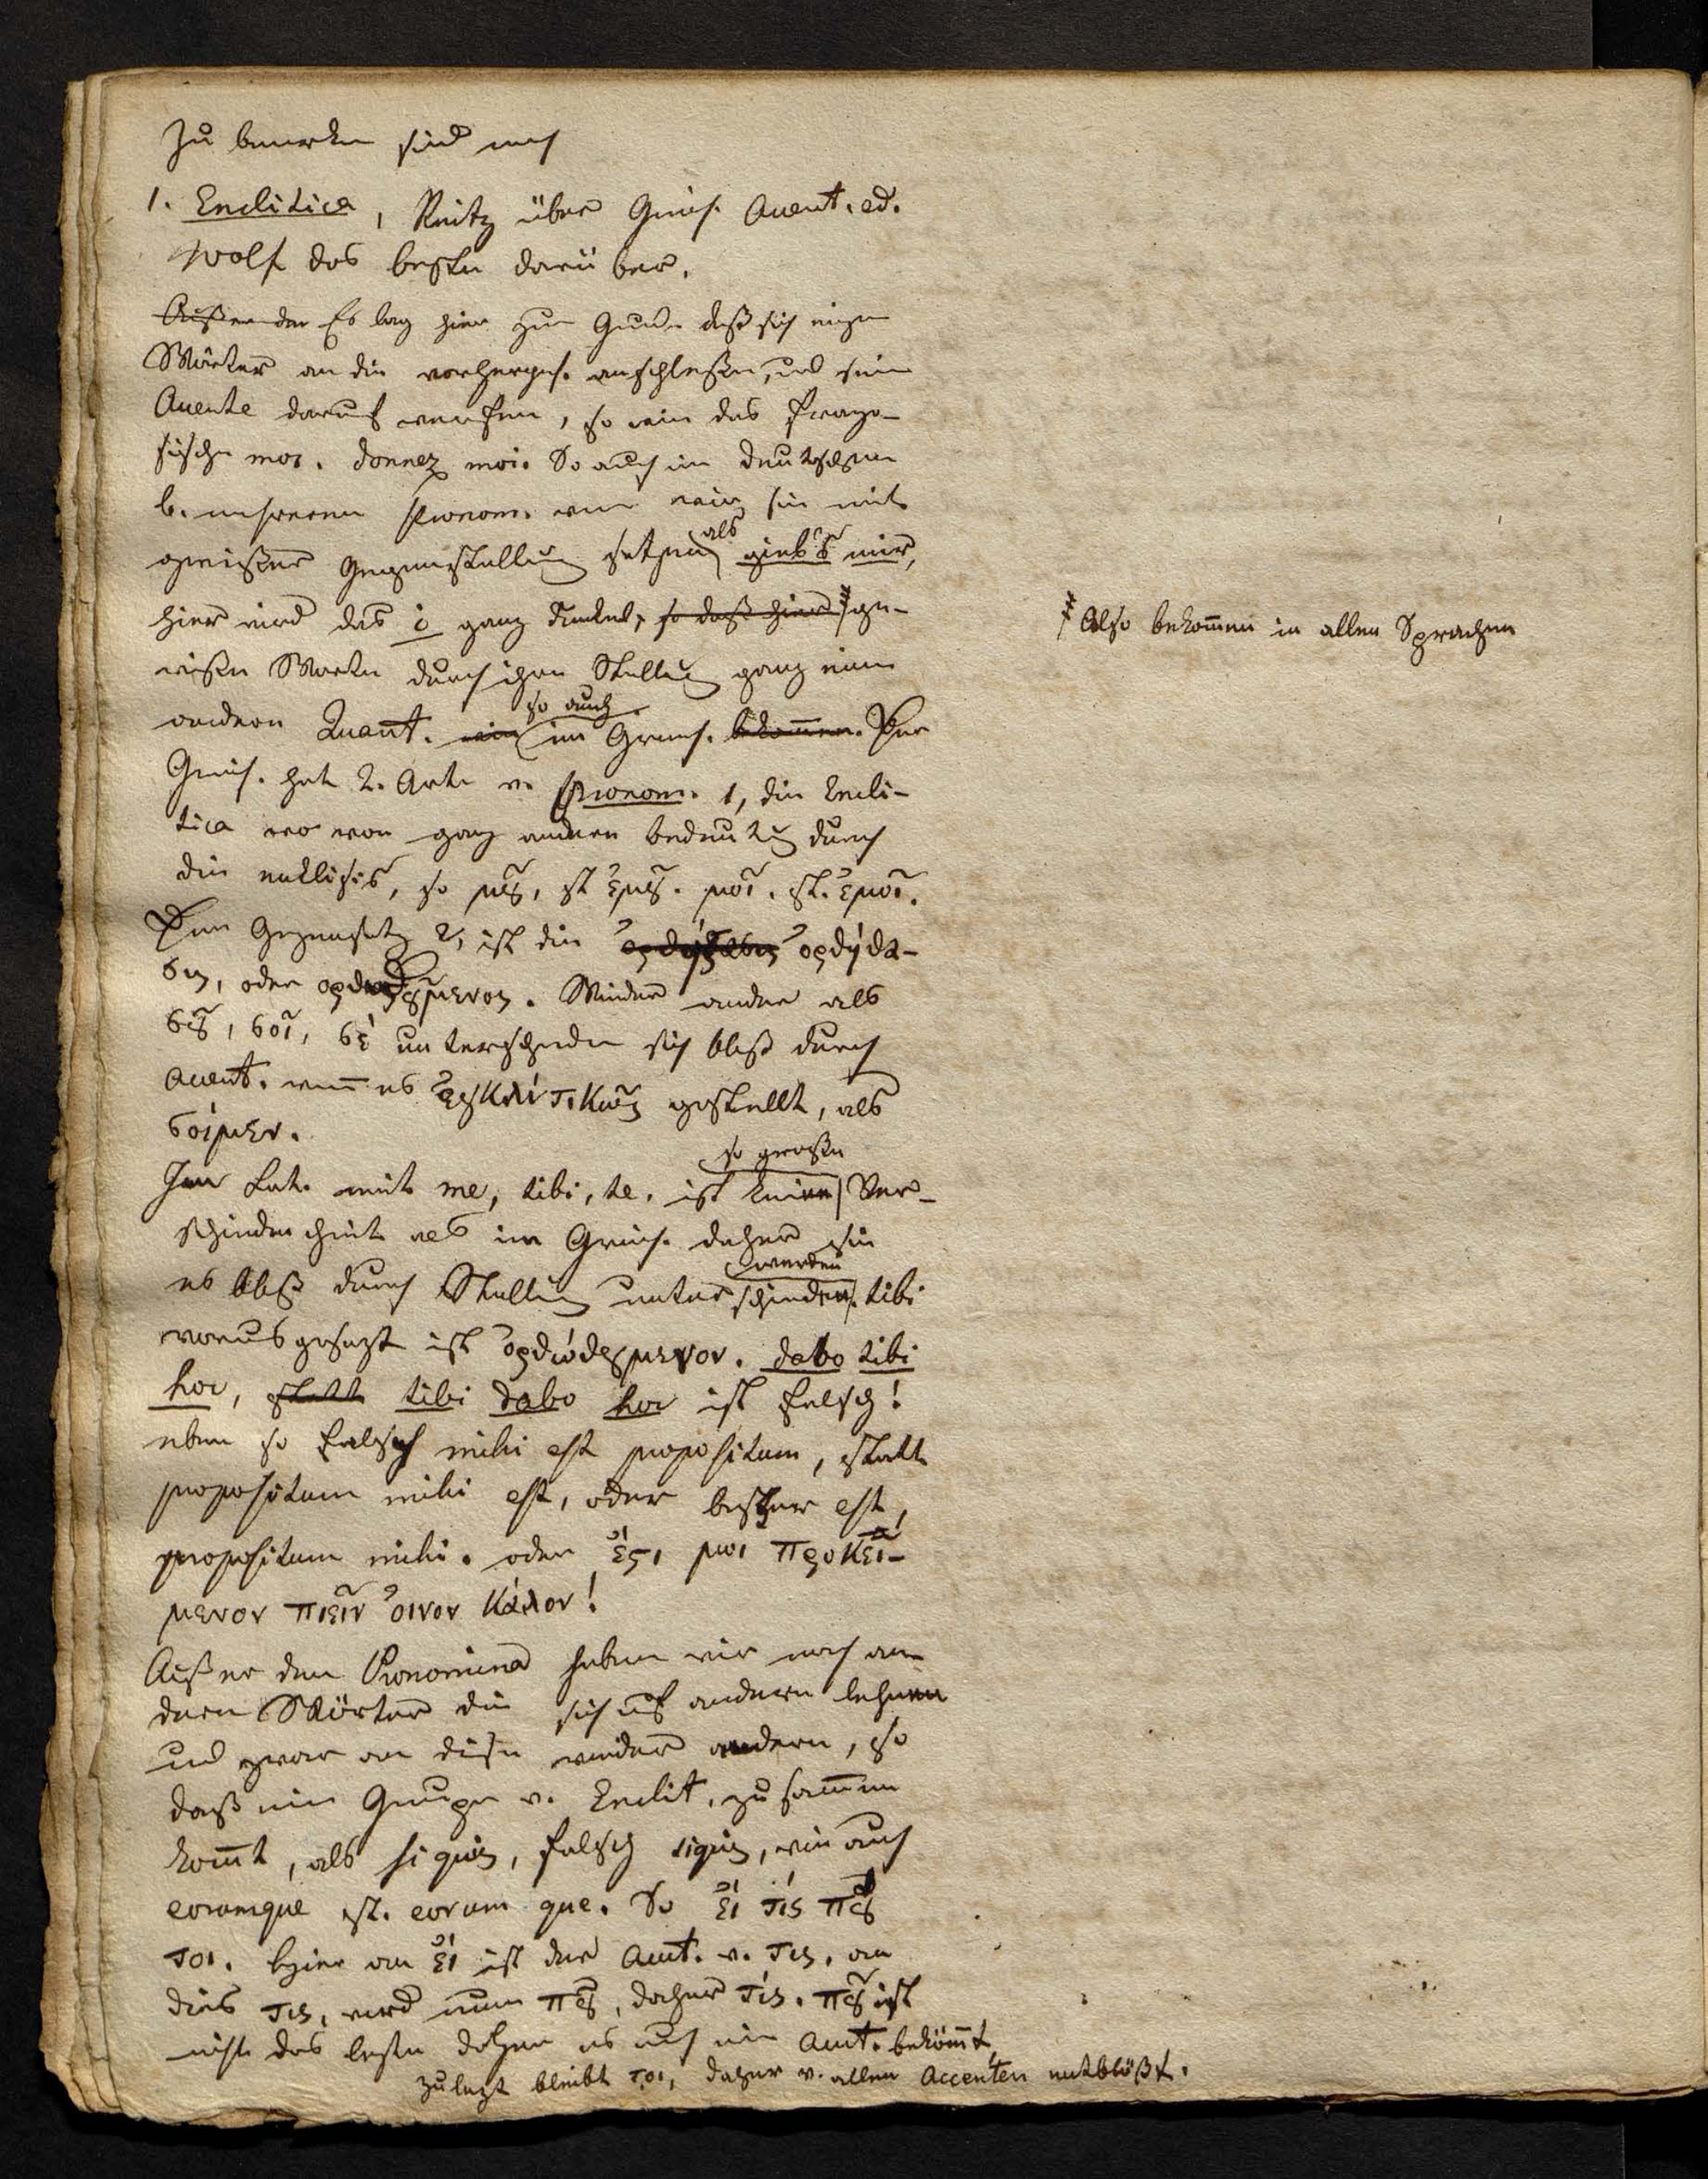 Zu bemerken sind noch
1. Enclitica, Reitz über Griech. Accent. ed.
Wolf das beste darüber.
Außerdem Es lag hier zum Grunde daß sich einige
Wörter an die vorhergeh. anschließen, und seine
Accente darauf werfen, so wie das franzö-
sische moi. donnez moi. So auch im deutschen
b. unseren Pronom. wenn wir sie mit
gewißer Gegenstellung setzen als gieb's mir,
hier wird das i ganz dunkel, so daß hier ge-
wiße Worte durch ihre Stellung ganz einen
andern Accent. wie so auch im Griech. bekommen. Der
Griech. hat 2. Arten v. Pronom. 1, die Encli-
tica wo von ganz andere bedeutung durch
die enklisis, so μȣ̃, st ἐμȣ̃. μοῖ. st. ἐμοῖ.
Der Gegensatz 2, ist die ορθότασις ὀρθότα-
σις, oder ορθοτȣμενος. Wieder andre als
σȣ̃, σοῖ, σέ unterscheiden sich bloß durch
Accent. wenn es ἐγκλίτικῶς gestellt, als
σοίμεν.
Im Lat. mit me, tibi, te. ist keine so große Ver-
schiedenheit als im Griech. daher sie
es bloß durch Stellung unterschieden werden. tibi
vorausgesezt ist ὀρθότȣμενον. dabo tibi
hoc, statt tibi dabo hoc ist falsch!
eben so falsch mihi est propositum, statt
propositum mihi est, oder besser est,
propositum mihi. oder ἔςι μοι προκεί-
μενον πιεῖν ὀινον κάλον!
Außer den Pronomina haben wir noch an-
dere Wörter die sich auf andere lehnen
und zwar an diese wieder andere, so
daß eine Gruppe v. Enclit. zusammen
kommt, als si quis, falsch siquis, wie auch
eorumque st. eorum que. So ἔι τίς πȣ̃
τοι. hier an ἔι ist der Acct. v. τις, an
dies τις, wird nun πȣ̃, daher τίς. πȣ̃ ist
nicht das leste daher es auch ein Acct. bekömmt
zulezt bleibt τοι, daher v. allen Accenten entblößt.
Also bekommen in allen Sprachen